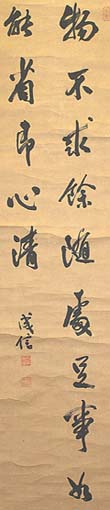 物不求餘隨處足事如
能省即心清
成信